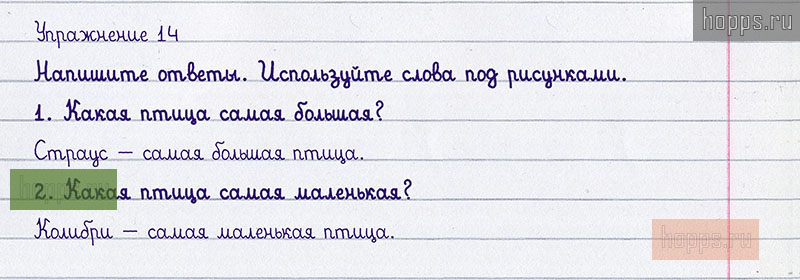 hopps.ru
Упражнение 14
Напишите ответы. Используйте слова под рисунками.
1. Какая птица самая большая?
Страус — самая большая птица.
2. Какая птица самая маленькая?
Колибри — самая маленькая птица.
hopps.ru